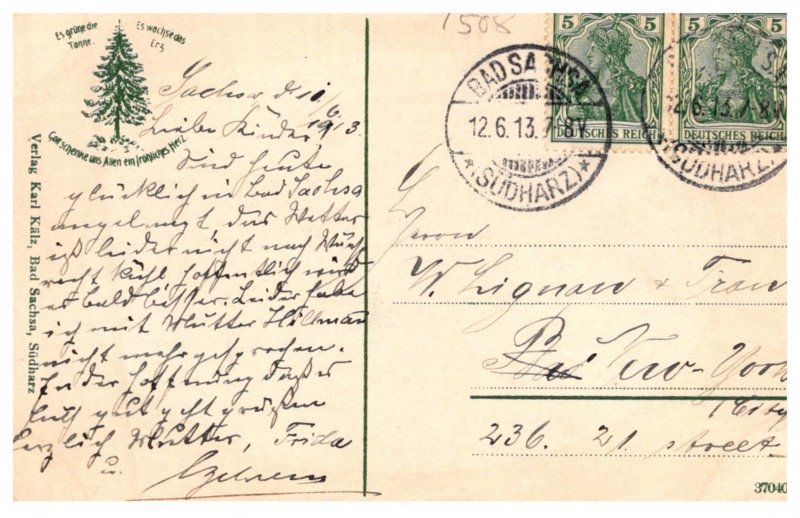 1508
Es grüne die
Tanne.
Es wachse das
Erz
Gott schenke uns Allen ein fröhliches Herz.
Verlag Karl Kälz, Bad Sachsa, Südharz
5 5
5 5
DEUTSCHES REICH
DEUTSCHES REICH
BAD SACHSA
12.6.13.7-8V
*(SÜDHARZ)*
12.6.13.7-8V
(SÜDHARZ)
Sachsa d 11/6 1913.
Liebe Kinder
Sind heute
glücklich in Bad Sachsa
angelangt das Wetter
ist leider nicht nach Wunsch
recht kühl hoffentlich wird
es bald besser. Leider habe
ich mit Mutter Hillmann
nicht mehr gesprochen.
In der Hoffnung daß es
Euch gut geht grüßen
herzlich Mutter, Frida
u.
Herrn
W. Lignau & Frau
New-York
City
236. 21. street
37040